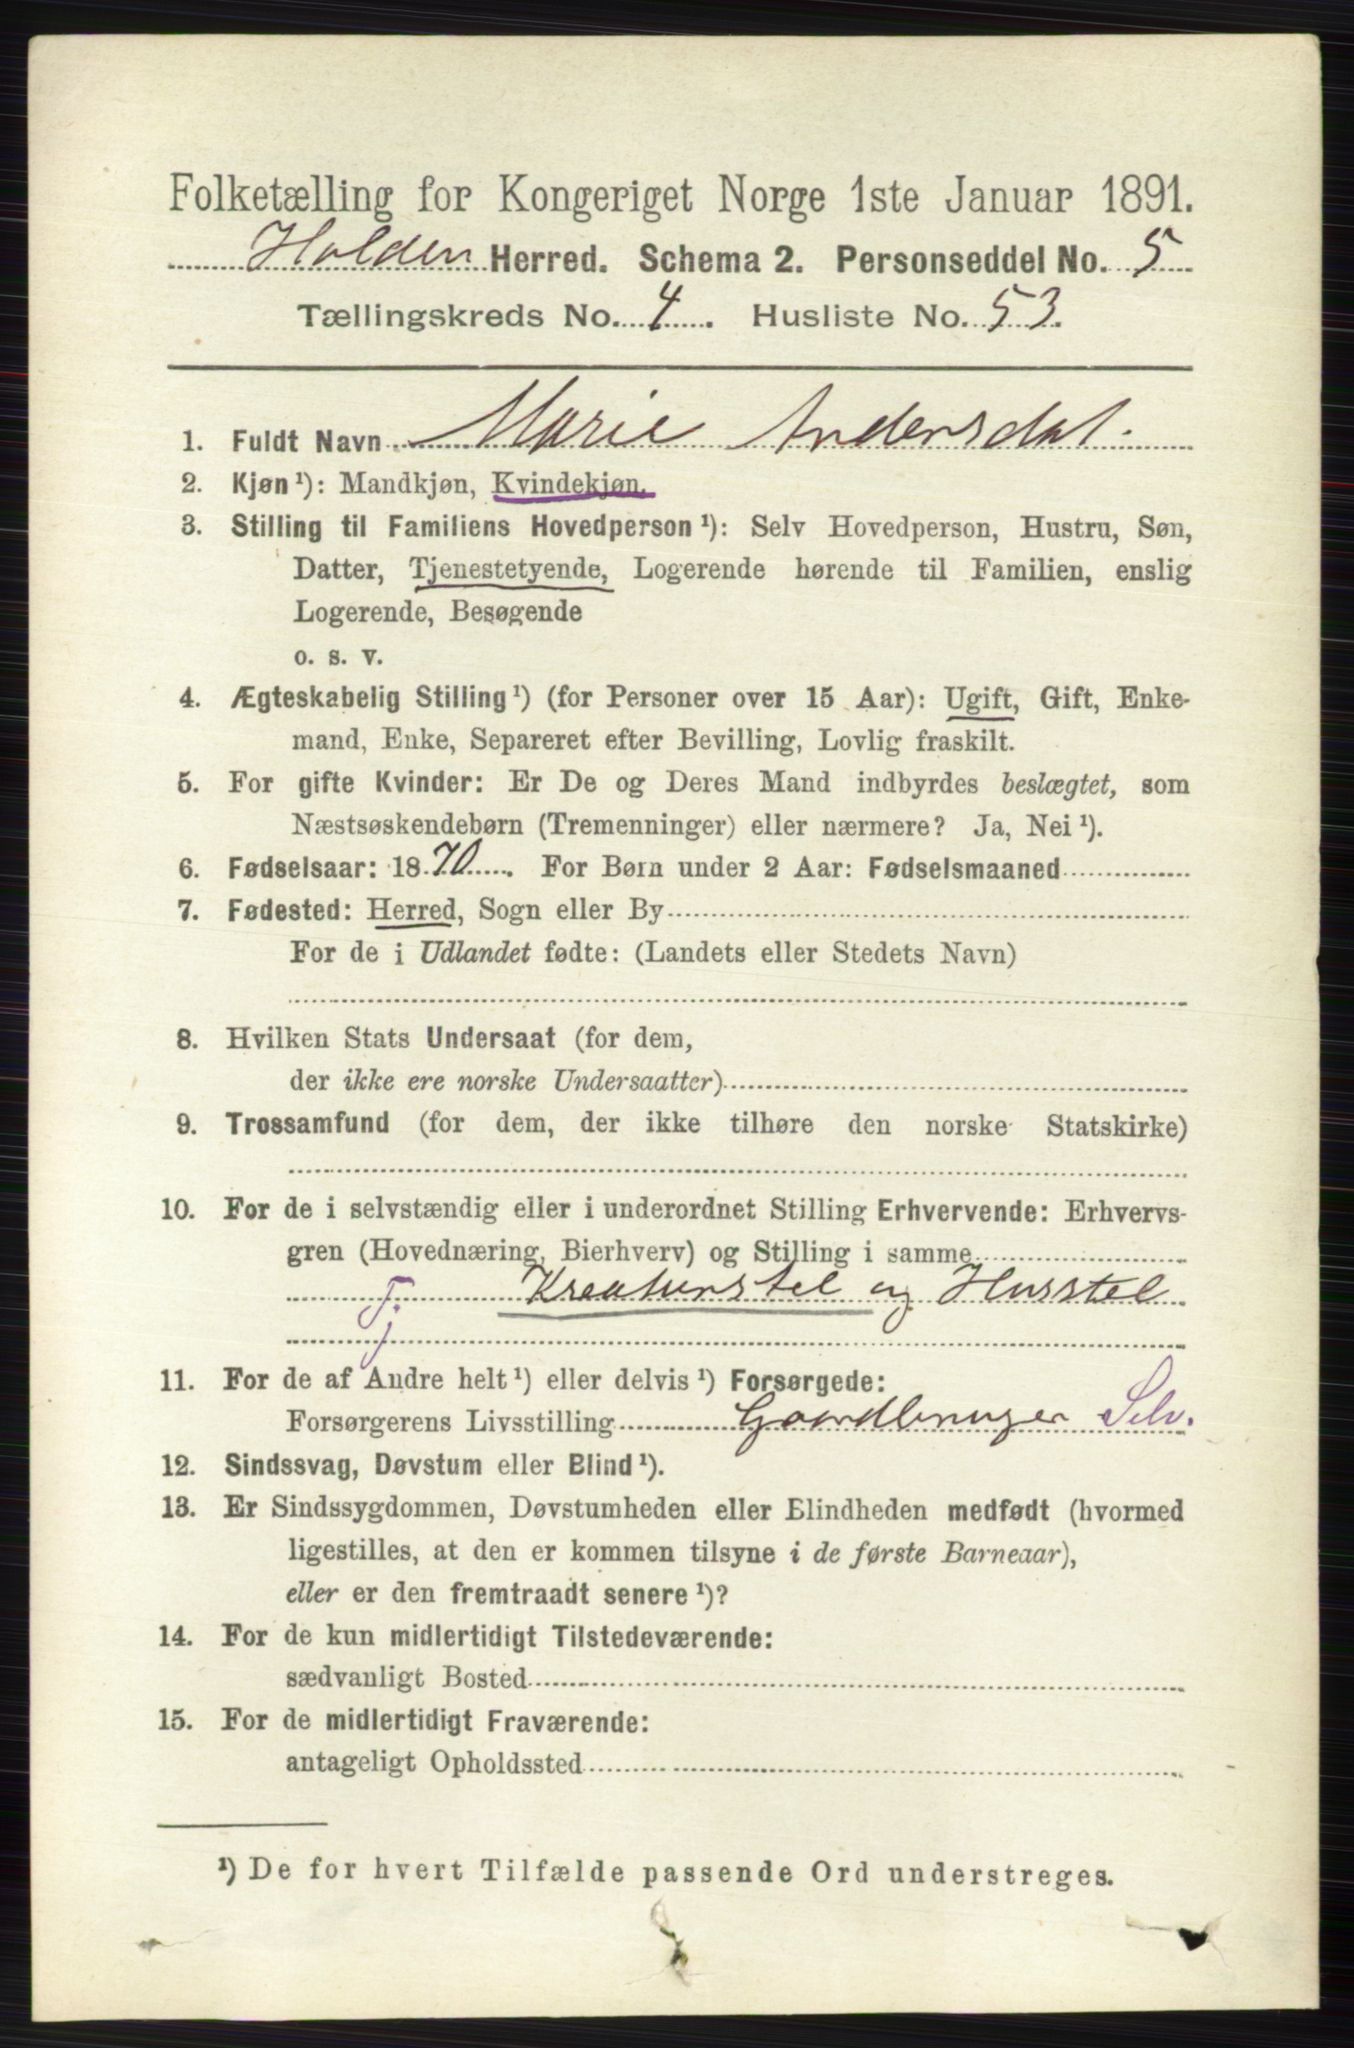 Folketælling for Kongeriget Norge 1ste Januar 1891.
Holden Herred. Schema 2. Personseddel No. 5
Tællingskreds No. 4. Husliste No. 53.
1. Fuldt Navn Marie Andersdat.
2. Kjøn¹): Mandkjøn, Kvindekjøn.
3. Stilling til Familiens Hovedperson¹): Selv Hovedperson, Hustru, Søn,
Datter, Tjenestetyende, Logerende hørende til Familien, enslig
Logerende, Besøgende
o. s. v.
4. Ægteskabelig Stilling¹) (for Personer over 15 Aar): Ugift, Gift, Enke-
mand, Enke, Separeret efter Bevilling, Lovlig fraskilt.
5. For gifte Kvinder: Er De og Deres Mand indbyrdes beslægtet, som
Næstsøskendebørn (Tremenninger) eller nærmere? Ja, Nei¹).
6. Fødselsaar: 1870. For Børn under 2 Aar: Fødselsmaaned
7. Fødested: Herred, Sogn eller By
For de i Udlandet fødte: (Landets eller Stedets Navn)
8. Hvilken Stats Undersaat (for dem,
der ikke ere norske Undersaatter)
9. Trossamfund (for dem, der ikke tilhøre den norske Statskirke)
10. For de i selvstændig eller i underordnet Stilling Erhvervende: Erhvervs-
gren (Hovednæring, Bierhverv) og Stilling i samme
Tj Kreaturstel og Husstel
11. For de af Andre helt¹) eller delvis¹) Forsørgede:
Forsørgerens Livsstilling Gaardbruger Selv.
12. Sindssvag, Døvstum eller Blind¹).
13. Er Sindssygdommen, Døvstumheden eller Blindheden medfødt (hvormed
ligestilles, at den er kommen tilsyne i de første Barneaar),
eller er den fremtraadt senere¹)?
14. For de kun midlertidigt Tilstedeværende:
sædvanligt Bosted
15. For de midlertidigt Fraværende:
antageligt Opholdssted
¹) De for hvert Tilfælde passende Ord understreges.